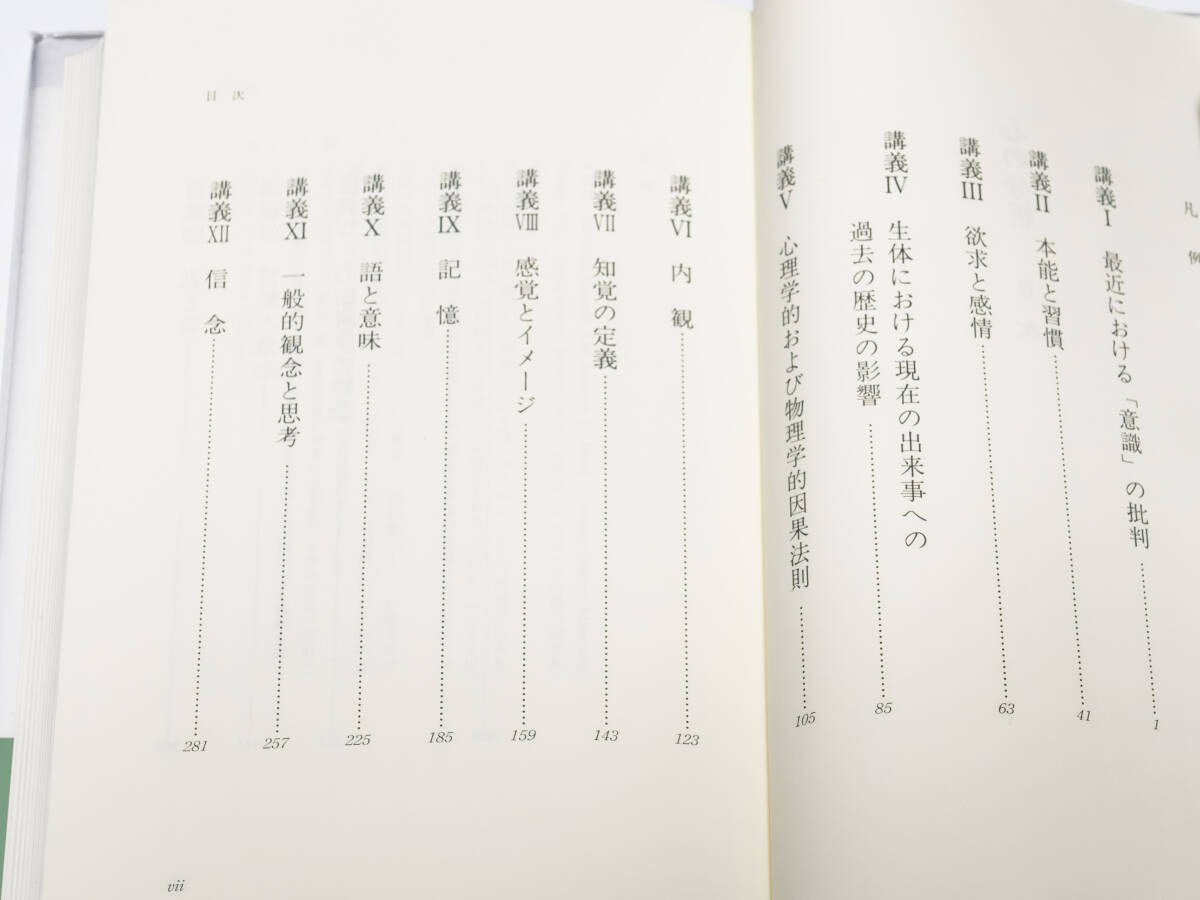 凡例
講義I 最近における「意識」の批判 1
講義II 本能と習慣 41
講義III 欲求と感情 63
講義IV 生体における現在の出来事への
過去の歴史の影響 85
講義V 心理学的および物理学的因果法則 105
目次
講義VI 内観 123
講義VII 知覚の定義 143
講義VIII 感覚とイメージ 159
講義IX 記憶 185
講義X 語と意味 225
講義XI 一般的観念と思考 257
講義XII 信念 281
vii